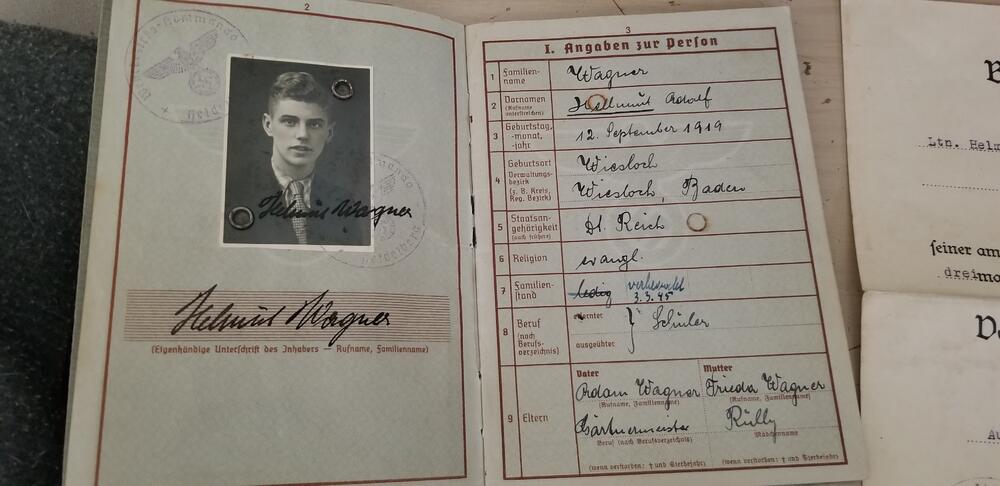 2
Helmut Wagner
Helmut Wagner
(Eigenhändige Unterschrift des Inhabers — Rufname, Familienname)
3
I. Angaben zur Person
1 Familien-
name
Wagner
2 Vornamen
(Rufname
unterstreichen)
Hellmut Adolf
3 Geburtstag,
-monat,
-jahr
12. September 1919
4 Geburtsort
Verwaltungs-
bezirk
(z. B. Kreis,
Reg. Bezirk)
Wiesloch
Wiesloch, Baden
5 Staatsan-
gehörigkeit
(auch frühere)
Dt. Reich
6 Religion
evangl.
7 Familien-
stand
ledig verheiratet
3.3.45
8 Beruf
(nach
Berufs-
verzeichnis)
erlernter
ausgeübter
Schüler
9 Eltern
Vater Mutter
Adam Wagner Frieda Wagner
(Rufname, Familienname) (Rufname, Familienname)
Gärtnermeister Rülly
Beruf (nach Berufsverzeichnis) Mädchenname
(wenn verstorben: † und Sterbejahr) (wenn verstorben: † und Sterbejahr)
B
Ltn. Helm
seiner am
dreima
Au